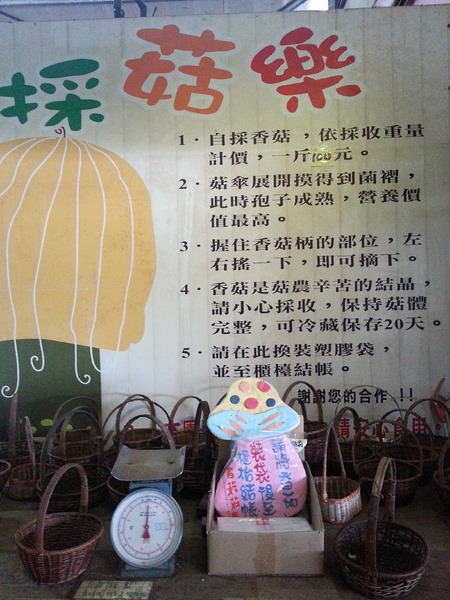 採菇樂
1．自採香菇，依採收重量
計價，一斤160元。
2．菇傘展開摸得到菌褶，
此時孢子成熟，營養價
值最高。
3．握住香菇柄的部位，左
右搖一下，即可摘下。
4．香菇是菇農辛苦的結晶，
請小心採收，保持菇體
完整，可冷藏保存20天。
5．請在此換裝塑膠袋，
並至櫃檯結帳。
謝謝您的合作 !!
請
心食用。
請將香菇
裝袋後至
櫃枱結帳